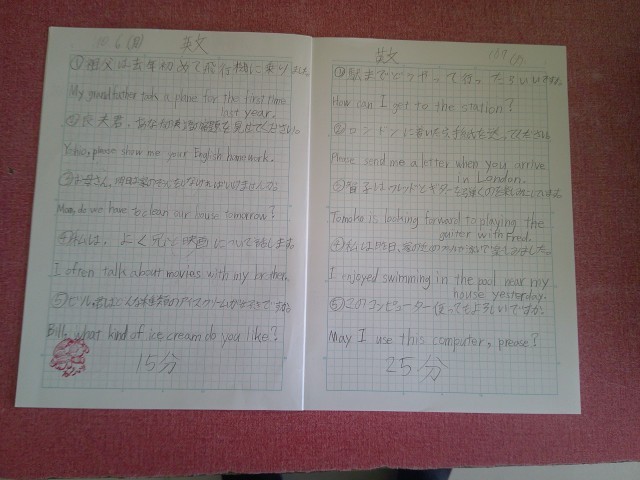 英文
①祖父は去年初めて飛行機に乗りました。
My grandfather took a plane for the first time
last year.
②良夫君、あなたの英語の宿題を見せてください。
Yoshio, please show me your English homework.
③お母さん、明日家のそうじをしなければいけませんか。
Mom, do we have to clean our house tomorrow?
④私は、よく兄と映画について話します。
I often talks about movies with my brother.
⑤ビル、君はどんな種類のアイスクリームが好きですか。
Bill, what kind of ice cream do you like?
15分
英文
①駅までどうやって行ったらいいですか。
How can I get to the station?
②ロンドンに着いたら手紙を送ってください。
Please send me a letter when you arrive
in London.
③智子はフレッドとギターを弾くのを楽しみにしている。
Tomoko is looking forward to playing the
guitar with Fred.
④私は昨日、家の近くのプールで泳いで楽しみました。
I enjoyed swimming in the pool near my
house yesterday.
⑤このコンピューター使ってもよろしいですか。
May I use this computer, prease?
25分